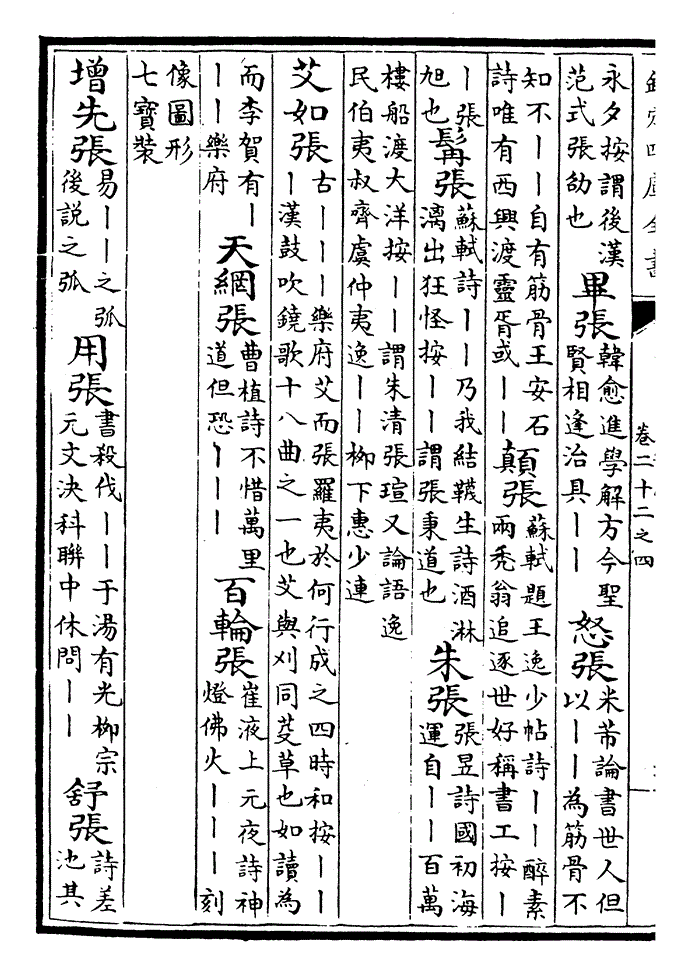 欽定四庫全書
卷二十二之四
永夕按謂後漢
范式張劭也
畢張
韓愈進學解方今聖
賢相逢治具丨丨
怒張
米芾論書世人但
以丨丨為筋骨不
知不丨丨自有筋骨王安石
詩唯有西興渡靈胥或丨丨
顛張
蘇軾題王逸少帖詩丨丨醉素
兩秃翁追逐世好稱書工按丨
丨張
旭也
髯張
蘇軾詩丨丨乃我結韈生詩酒淋
漓出狂怪按丨丨謂張秉道也
朱張
張昱詩國初海
運自丨丨百萬
樓船渡大洋按丨丨謂朱清張瑄又論語逸
民伯夷叔齊虞仲夷逸丨丨柳下惠少連
艾如張
古丨丨丨樂府艾而張羅夷於何行成之四時和按丨丨
丨漢鼓吹鐃歌十八曲之一也艾與刈同芟草也如讀為
而李賀有丨
丨丨樂府
天網張
曹植詩不惜萬里
道但恐丨丨丨
百輪張
崔液上元夜詩神
燈佛火丨丨丨刻
像圖形
七寶裝
增先張
易丨丨之弧
後説之弧
用張
書殺伐丨丨于湯有光柳宗
元文決科聯中休問丨丨
舒張
詩差
池其